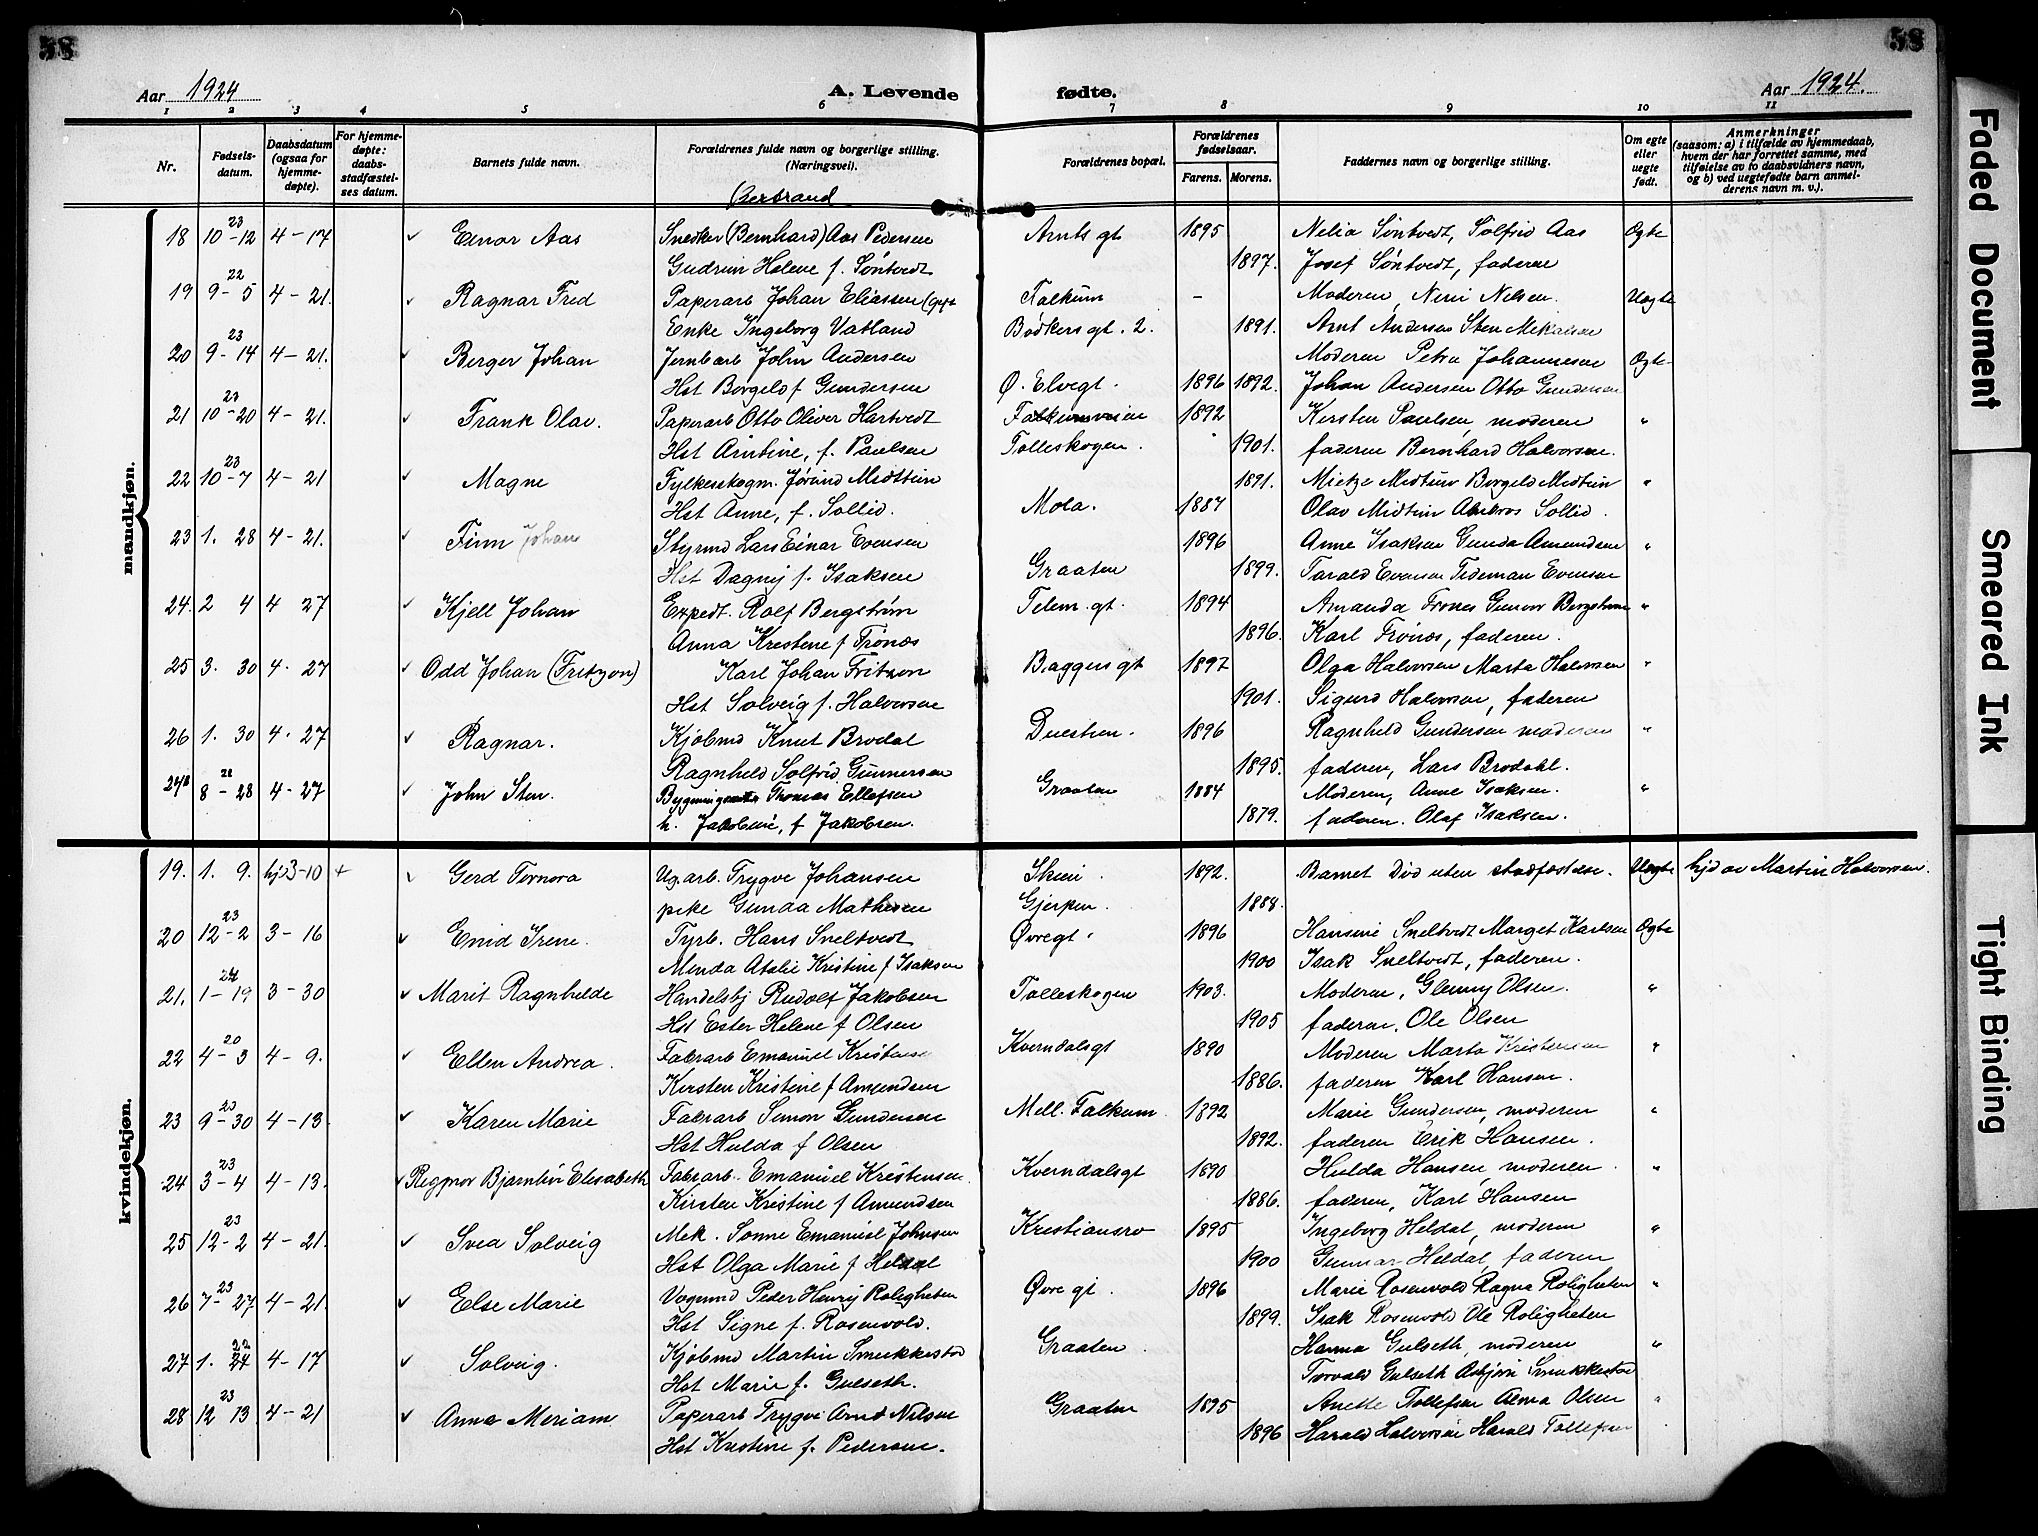 58
58
Aar 1924
A. Levende
fødte.
Aar 1924.
1 2 3 4 5 6 7 8 9 10 11
Nr.
Fødsels-
datum.
Daabsdatum
(ogsaa for
hjemme-
døpte).
For hjemme-
døpte:
daabs-
stadfæstel-
ses datum.
Barnets fulde navn.
Forældrenes fulde navn og borgerlige stilling.
(Næringsvei).
Forældrenes bopæl.
Forældrenes
fødselsaar.
Farens. Morens.
Faddernes navn og borgerlige stilling.
Om egte
eller
uegte
født.
Anmerkninger
(saasom: a) i tilfælde av hjemmedaab,
hvem der har forrettet samme, med
tilføielse av to daabsvidners navn,
og b) ved uegtefødte barn anmel-
derens navn m. v.).
mandkjøn.
Bertrand
23
18 10-12 4-17 ✓ Einar Aas Snedker (Bernhard) Aas Pedersen Arnts gt 1895 Nelia Søntvedt, Solfrid Aas Egte
Gudrun Helene f. Søntvedt 1897. Josef Søntvedt, faderen
22
19 9-5 4-21. ✓ Ragnar Fred Paperarb Johan Eliassen (gift Falkum - Moderen, Nini Nelsen. Uegte
Enke Ingeborg Vatland Bødkers gt. 2. 1891. Arnt Andersen Sten Mikalsen
23
20 9-14 4-21. ✓ Berger Johan Jernbarb John Andersen Moderen Petra Johannesen Egte
Hst Borgeld f Gundersen Ø. Elvegt. 1896 1892. Johan Andersen Otto Gundersen
23
21 10-20 4-21. ✓ Frank Olav. Paperarb Otto Oliver Hartvedt Falkumveien 1892 Kirsten Paulsen, moderen "
Hst Arntine, f. Paulsen Tolleskogen. 1901. faderen Bernhard Halvorsen.
23
22 10-7 4-21 ✓ Magne Fylkesskogm. Jørund Midttun 1891. Mietze Midtun Borgeld Midtun "
Hst Anne, f. Sollid. Mola. 1887 Olav Midtun Sollid.
23 1. 28 4-21. ✓ Finn Johan Styrmd Lars Einar Evensen 1896 Anne Isaksen Gunda Amundsen "
Hst Dagny f. Isaksen Graaten 1899. Tarald Evensen Tideman Evensen
24. 2 4 4 27 ✓ Kjell Johan Expedt. Rolf Bergstrøm Telem. gt. 1894 Amanda Trones Gunvor Bergstrøm "
Anna Kristine f Trønæs 1896. Karl Trønæs, faderen.
25 3. 30 4. 27 ✓ Odd Johan (Fritzon) Karl Johan Fritzon Baggers gt 1897 Olga Halvorsen Marta Halvorsen "
Hst Solveig f. Halvorsen 1901. Sigurd Halvorsen, faderen
26 1. 30 4. 27 ✓ Ragnar. Kjøbmd Knut Brodal Duestien. 1896 Ragnhild Gundersen moderen "
Ragnhild Solfrid Gunnersen 1895. faderen, Lars Brodahl.
21
8-28 4-27 ✓ John Sten. Thomas Ellefsen Graaten 1884 Moderen, Anne Isaksen. "
h. Jakobine, f Jakobsen. 1879. faderen. Olaf Isaksen.
kvindekjøn.
19. 1. 9. hj 3-10 + Gerd Tornora Ug. arb. Trygve Johansen Skien 1892. Barnet død uten stadfæstelse. Uegte hjd av Martin Halvorsen.
pike Gunda Mathisen Gjerpen. 1888.
23
20 12-2 3-16 ✓ Enid Irene. Fyrb. Hans Sneltvedt Øvregt. 1896 Hansine Sneltvedt Marget Karlsen Egte
Minda Atalie Kristine f Isaksen 1900 Isak Sneltvedt, faderen.
24
21. 1-19 3-30 ✓ Marit Ragnhilde Handelsbj Rudolf Jakobsen Tolleskogen 1903. Moderen, Glenny Olsen. "
Hst Ester Helene f Olsen 1905 faderen, Ole Olsen
20
22 4-3 4-9. ✓ Ellen Andrea. Fabrarb Emanuel Kristensen Kverndalsgt 1890 Moderen Marta Kristensen "
Kirsten Kristine f Amundsen 1886. faderen Karl Hansen.
23
23 9-30 4-13 ✓ Karen Marie Fabrarb Simon Gundersen Mell. Falkum 1892 Marie Gundersen, moderen "
Hst Hulda f Olsen 1892. faderen Erik Hansen.
23
24 3-4 4-13. ✓ Ragnor Bjarnlin Elisabeth Fabrarb. Emanuel Kristensen Kverndalsgt 1890 Hulda Hansen, moderen. "
Kirsten Kristine f Amundsen 1886. faderen, Karl Hansen
23
25 12-2 4-21. ✓ Svea Solveig Mek. Sonne Emanuel Johnsen Kristiansro 1895 Ingeborg Heldal, moderen "
Hst Olga Marie f Heldal 1900 Gunnar Heldal, faderen
23
26 7-27 4-21. ✓ Else Marie Vognmd Peder Henry Roligheten Øvre gt. 1896 Marie Rosenvold Ragna Roligheten "
Hst Signe f. Rosenvold. 1899. Isak Rosenvold Ole Roligheten
22
27 1. 24 4-17 ✓ Solveig. Kjøbmd Martin Smukkestad Graaten. Hanna Gulseth, moderen "
Hst Marie f. Gulseth. Torvald Gulseth Asbjørn Smukkestad
23
28 12 13 4-21 ✓ Anna Meriam Paperarb Trygve Arnd Nilsen Graaten 1895 Anette Tollefsen Alma Olsen "
Hst Kristine f. Pedersen. 1896 Harald Halvorsen Harald Tollefsen
Faded Document
Smeared Ink
Tight Binding